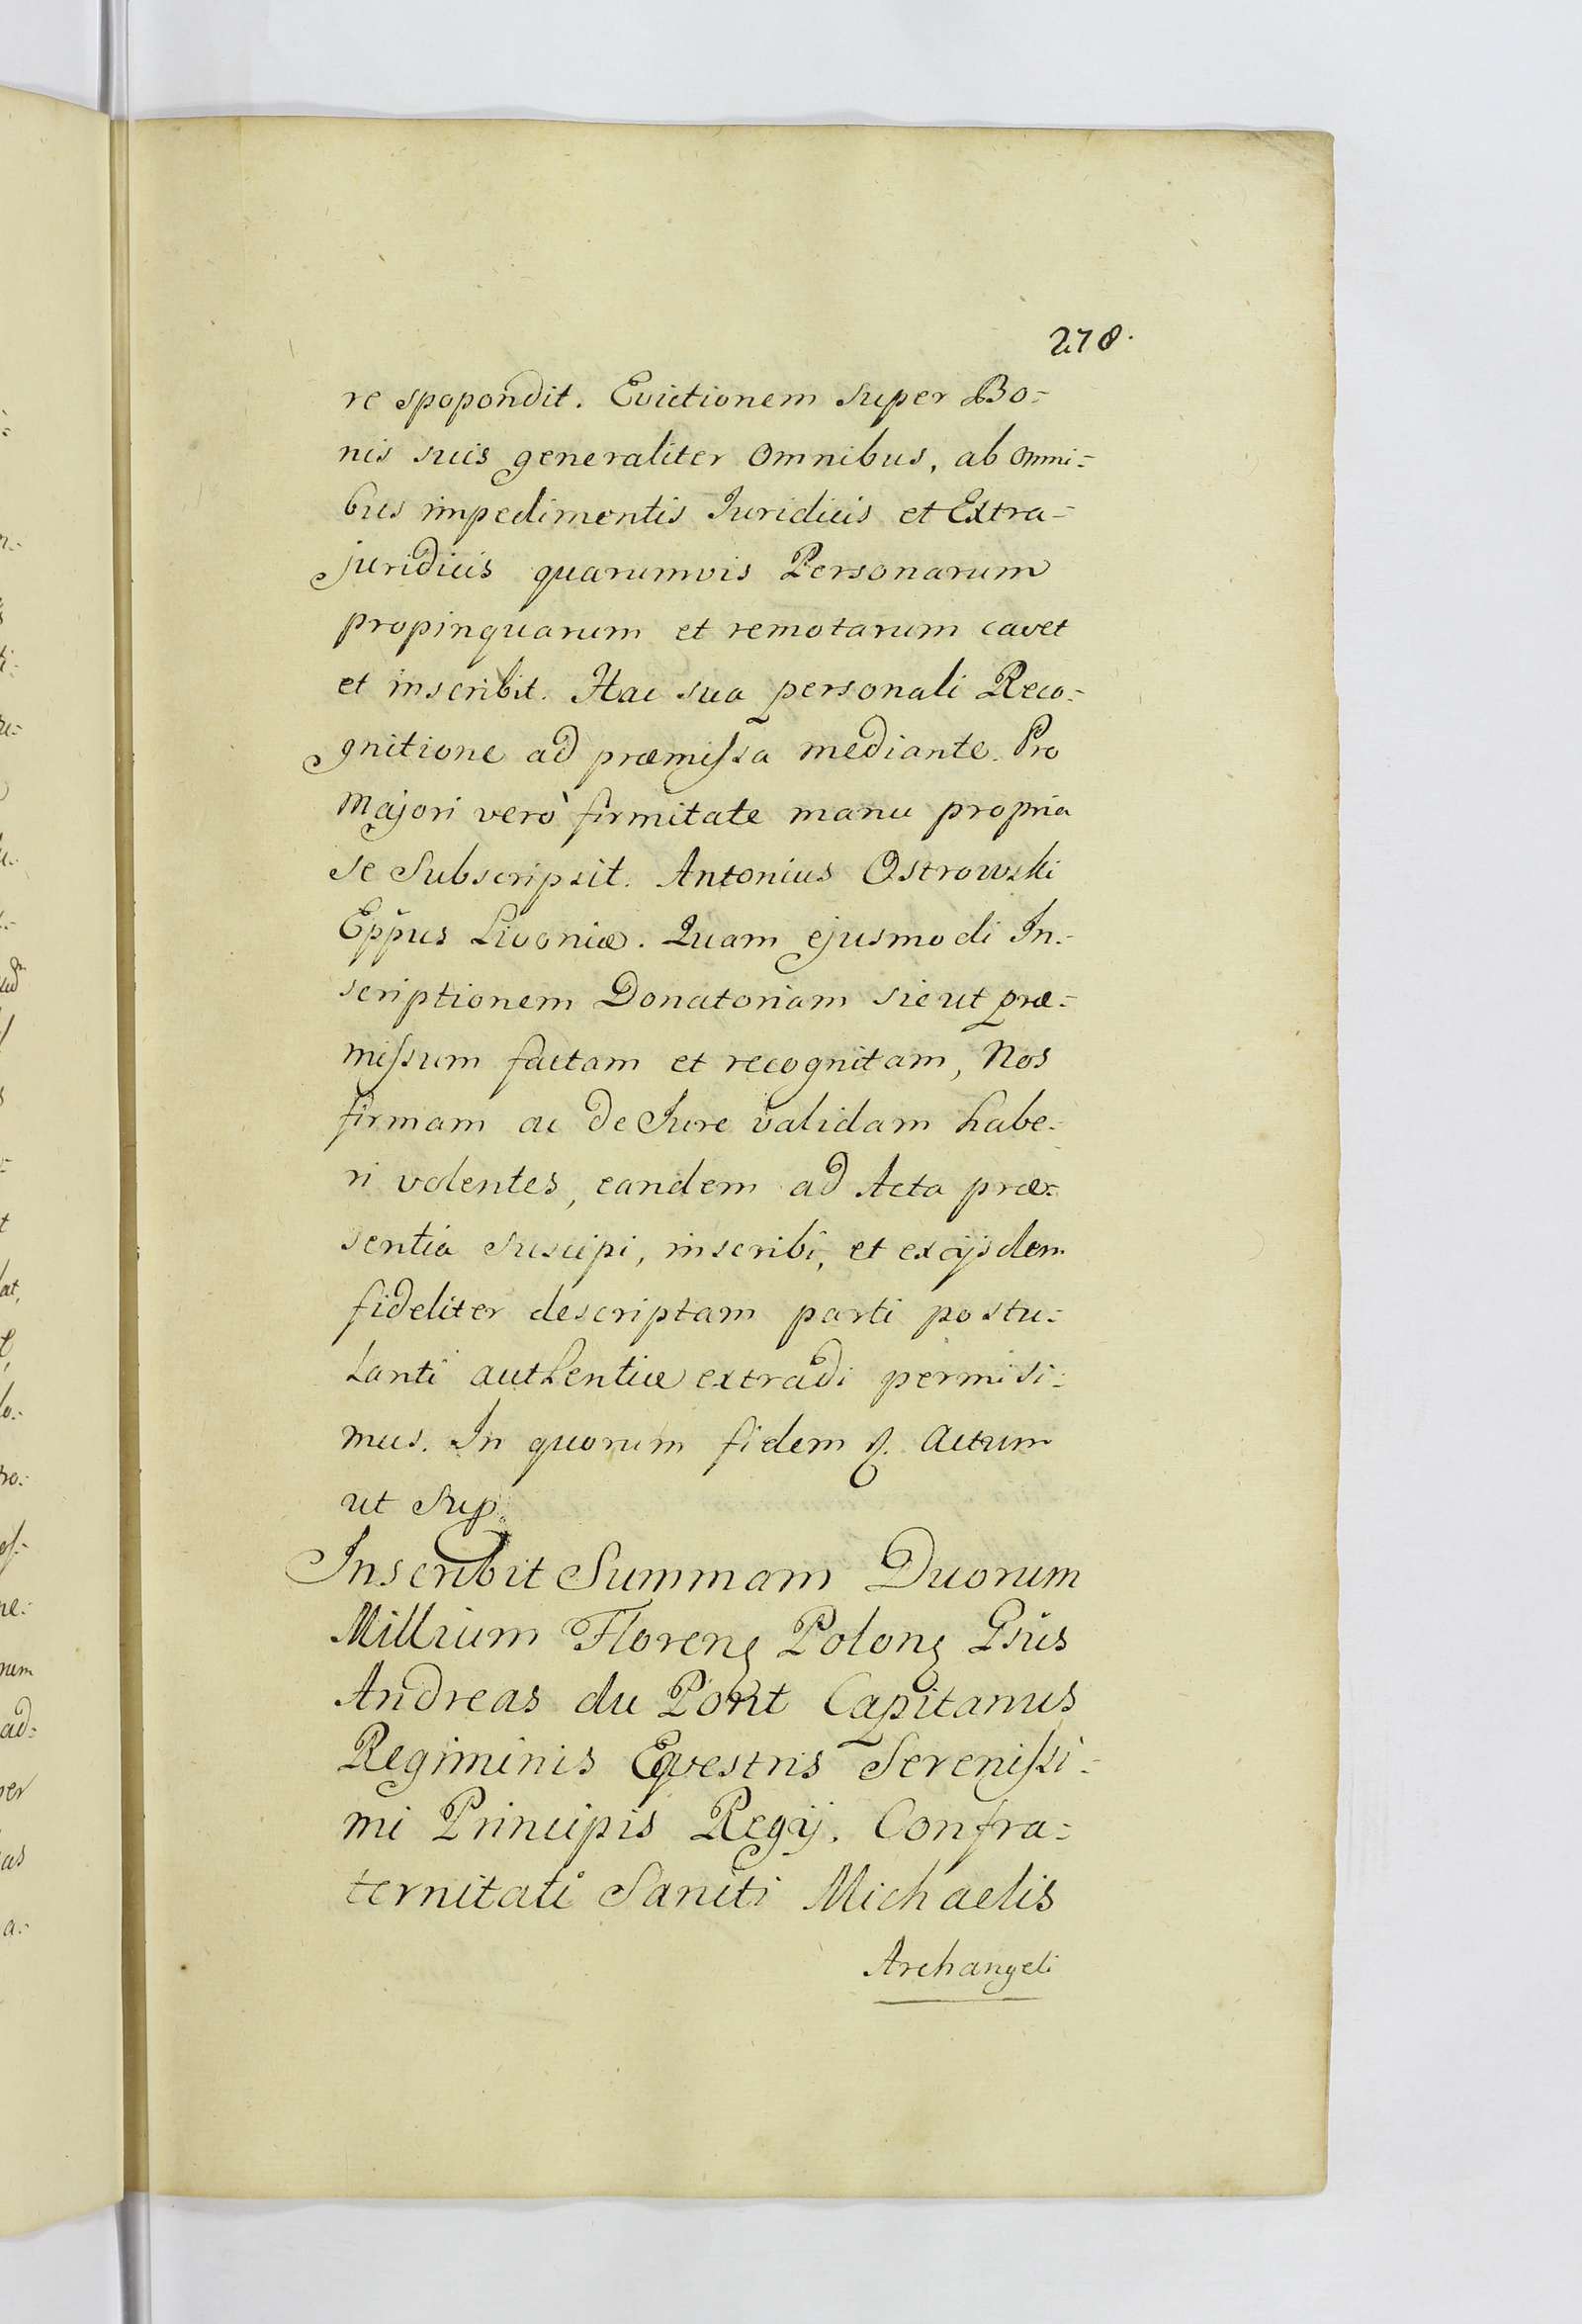 278.
re spopondit. Evictionem super Bo=
nis suis generaliter omnibus, ab omni=
bus impedimentis Iuridicis et Extra=
juridicis quarumvis Personarum
propinquarum et remotarum cavet
et inscribit. Hac sua personali Reco=
gnitione ad præmissa mediante. Pro
Majori verò firmitate manu propria
se Subscripsit. Antonius Ostrowski
Epp̃us Livoniæ. Quam ejusmodi In=
scriptionem Donatoriam sicut præ=
missum factam et recognitam, Nos
firmam ac de Iure validam habe=
ri volentes, eandem ad Acta præ=
sentia suscipi, inscribi, et ex ijsdem
fideliter descriptam parti postu=
lanti authentice extradi permisi=
mus. In quorum fidem Actum
ut Sup.
Inscribit Summam Duorum
Millium Floren Polon Gsũs
Andreas du Pont Capitanus
Regiminis Eqvestris Serenissi=
mi Principis Regij. Confra=
ternitati Sancti Michaelis
Archangeli